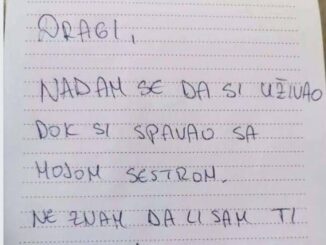 DRAGI,
NADAM SE DA SI UŽIVAO
DOK SI SPAVAO SA
MOJOM SESTROM.
NE ZNAM DA LI SAM TI